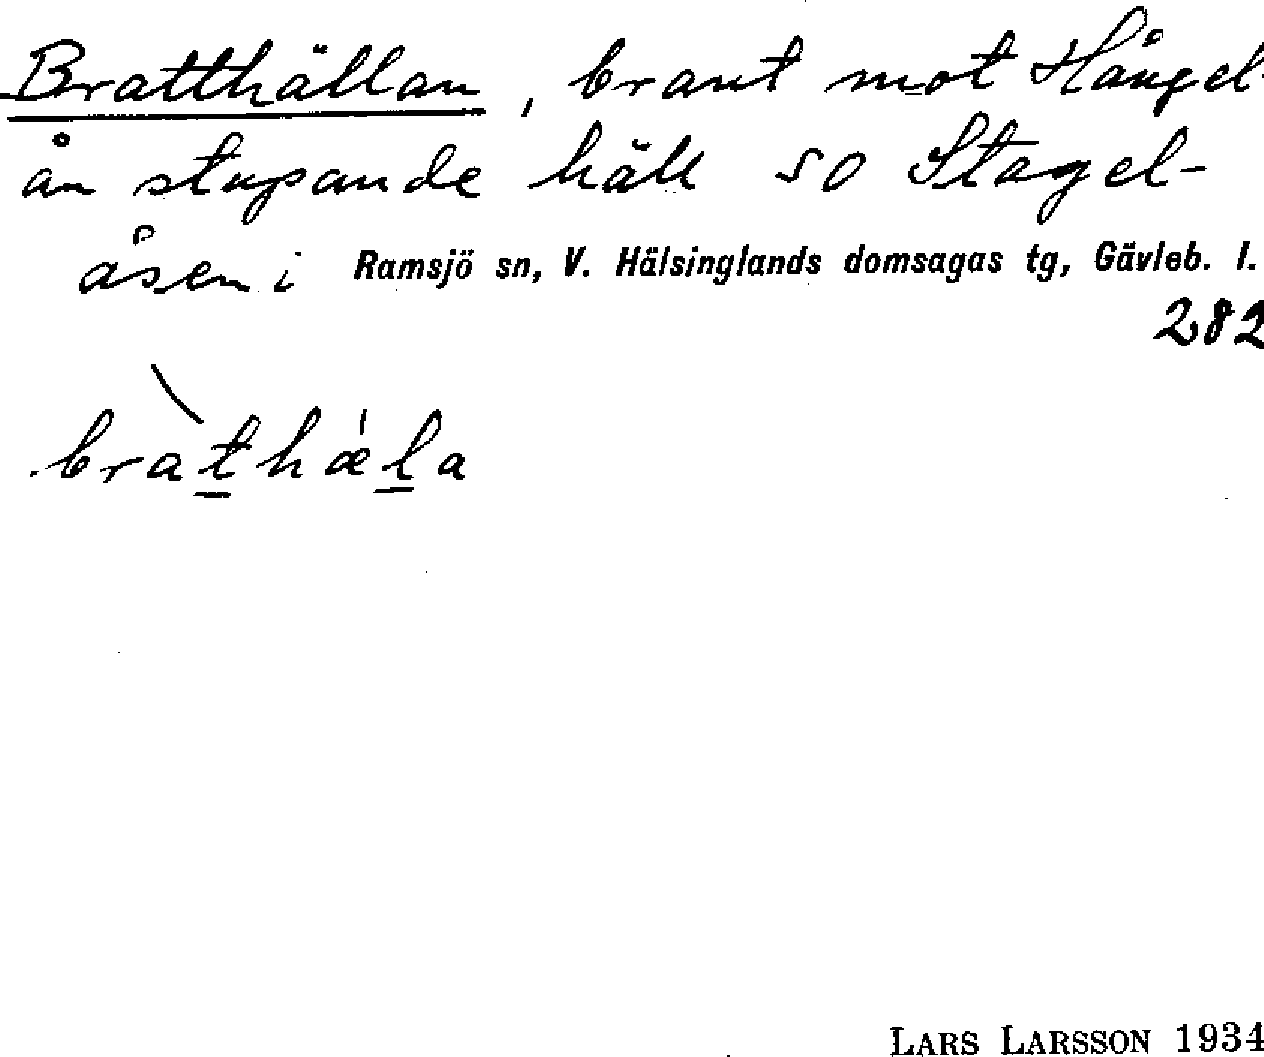 Bratthällan, brant mot Hångel-
ån stupande häll SO Stagel-
åsen i Ramsjö sn, V. Hälsinglands domsagas tg, Gävleb. l.
282
brathæla
LARS LARSSON 1934